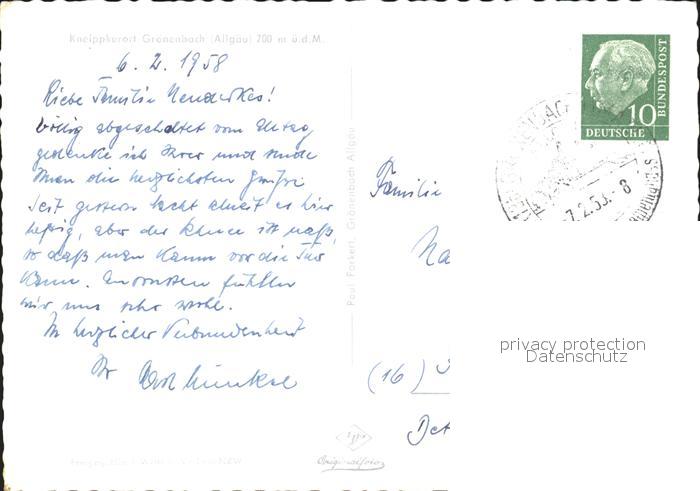 Kneippkurort Grönenbach (Allgäu) 700 m ü.d.M.
6. 2. 1958
Liebe Familie
Völlig abgeschaltet vom Alltag
gedenke ich Ihrer und sende
Ihnen die herzlichsten Grüße
Seit gestern Nacht schneit es hier
heftig, aber der Schnee ist naß,
so daß man kaum vor die Tür
kann. Ansonsten fühlen
wir uns sehr wohl.
In herzlicher Verbundenheit
Ihr
Paul Forkert, Grönenbach Allgäu
Originalfoto
BUNDESPOST
10
DEUTSCHE
7.2.58.- 8
Familie
Na
(16)
Det
privacy protection
Datenschutz